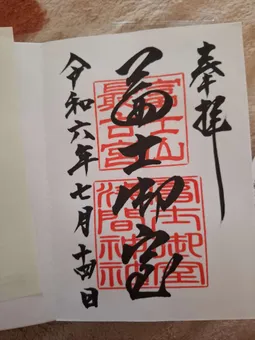 奉拝
冨士御室
富士山
最古宮
冨士御室
浅間神社
令和六年七月十四日